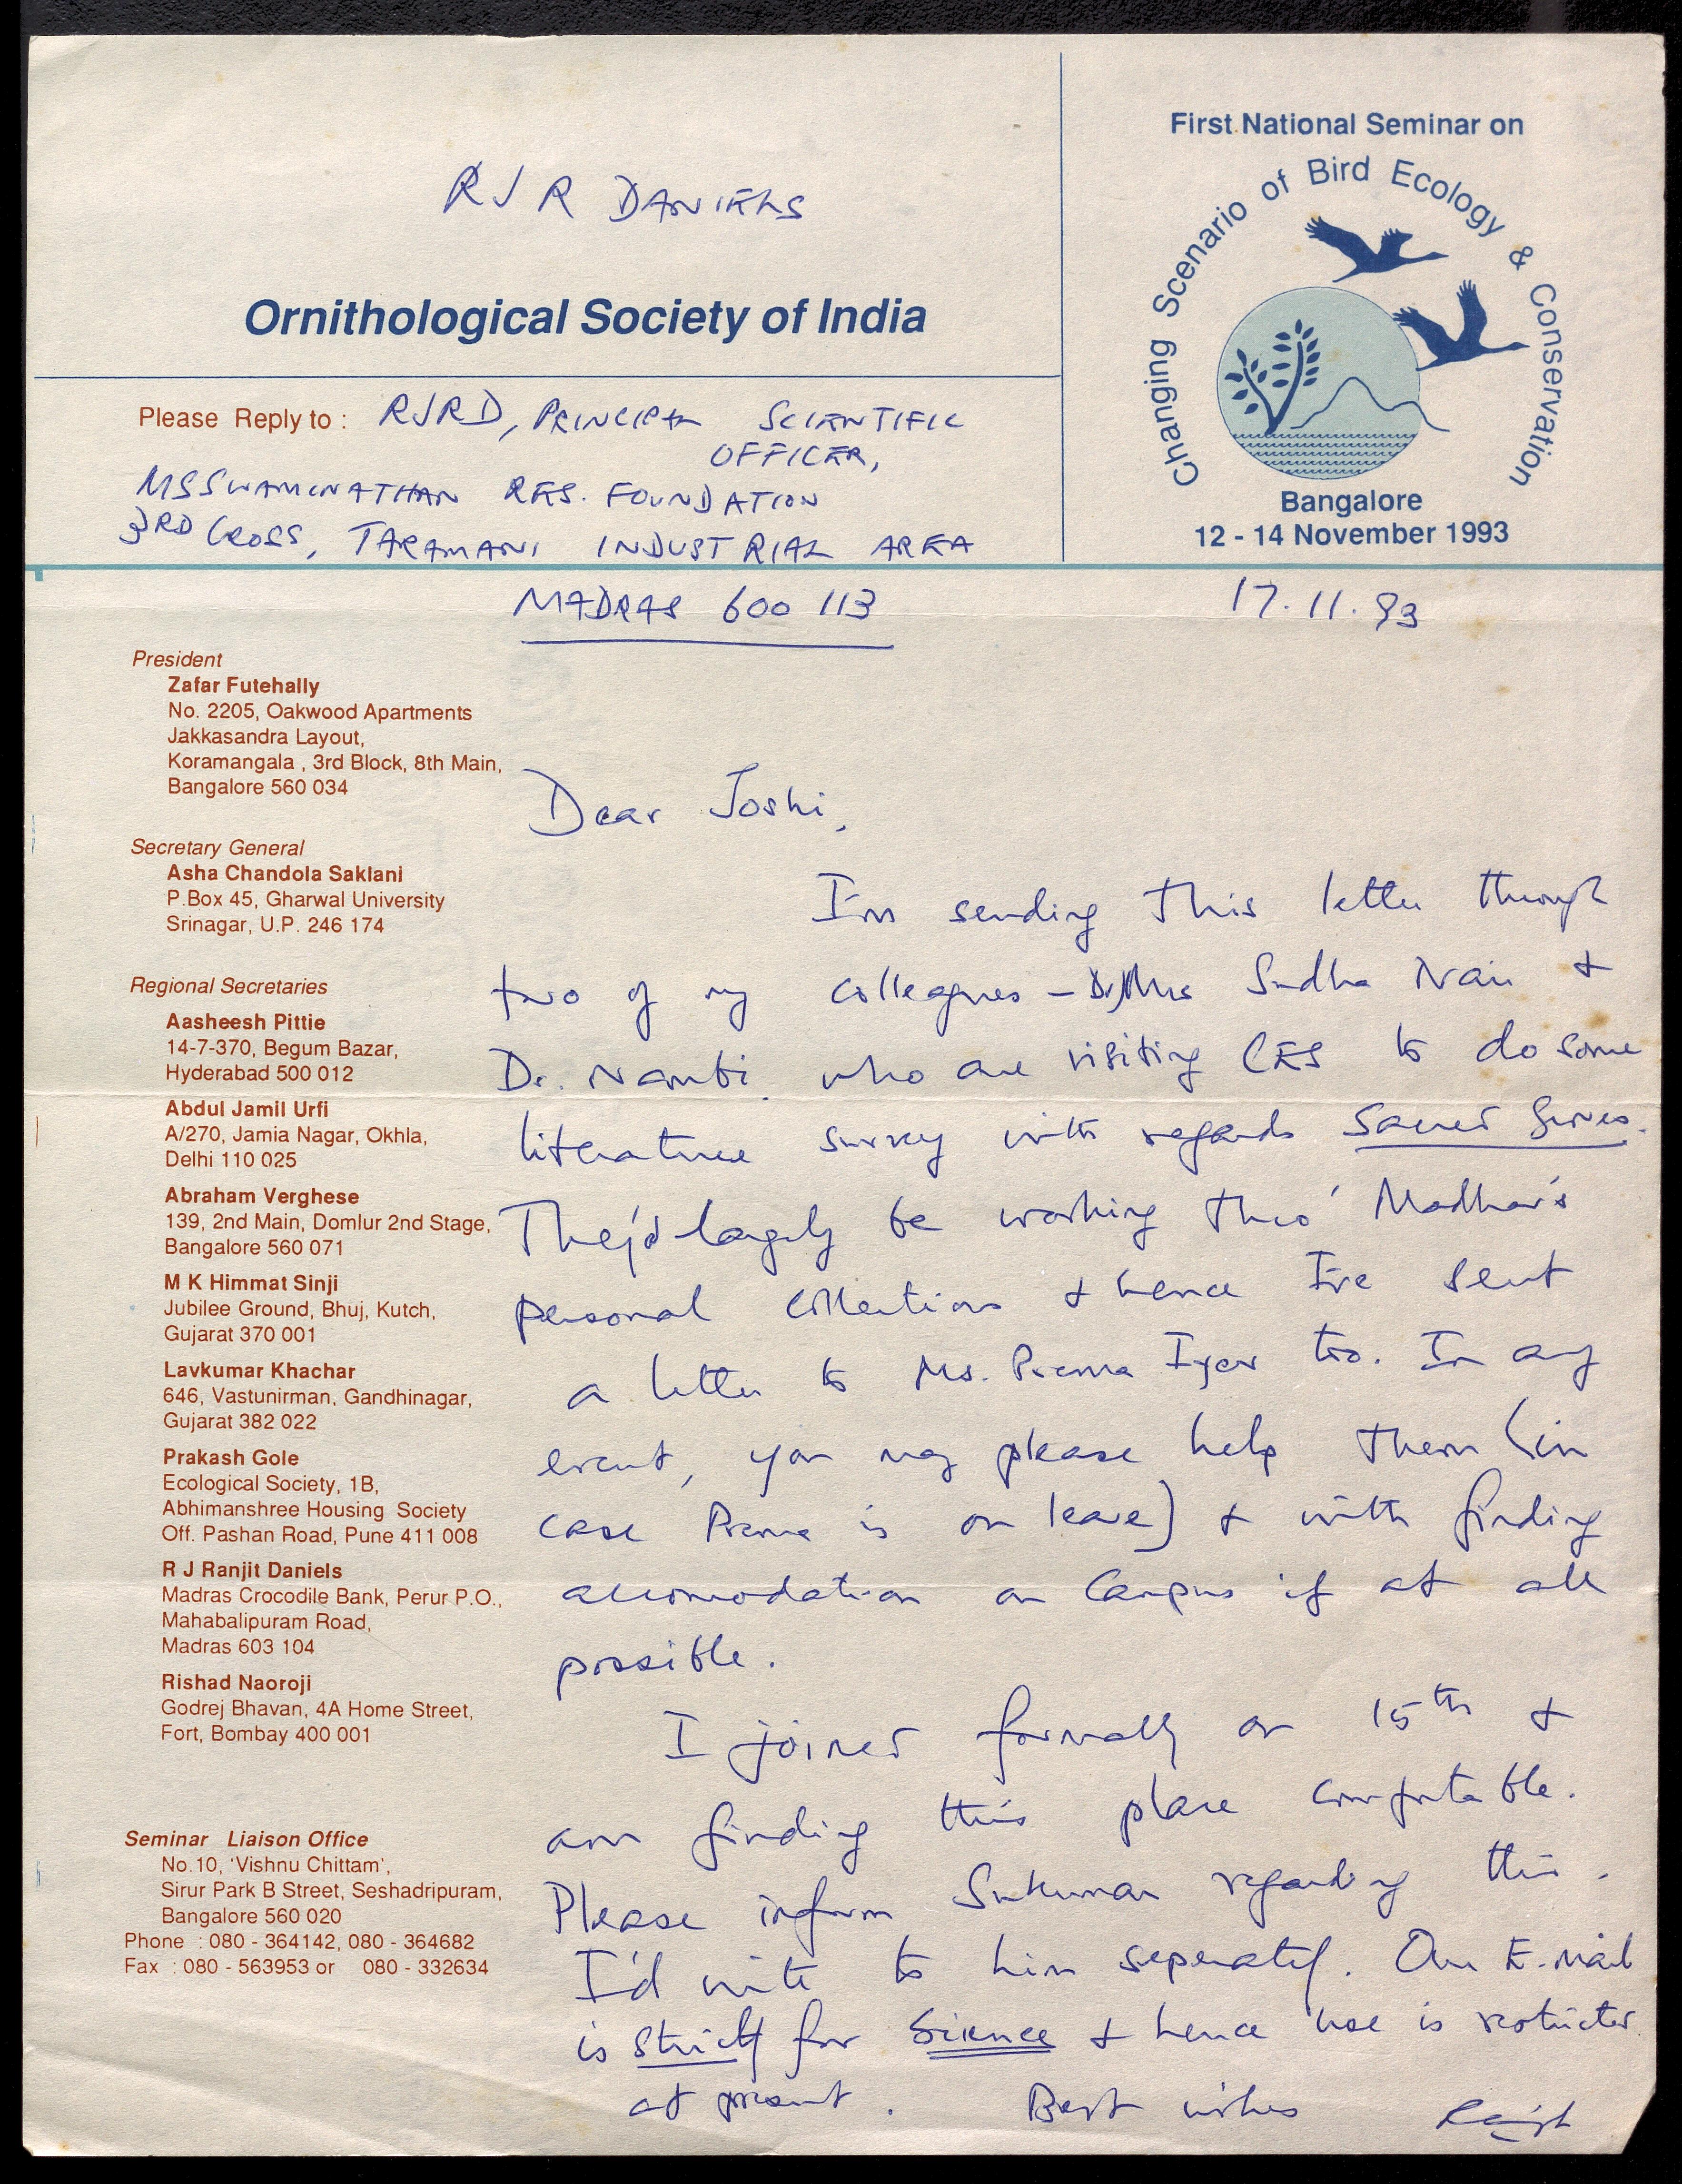 R J R DANIELS
Ornithological Society of India
First National Seminar on
Changing Scenario of Bird Ecology & Conservation
Bangalore
12 - 14 November 1993
Please Reply to : RJRD, PRINCIPAL SCIENTIFIC
OFFICER,
MSSWAMINATHAN RES. FOUNDATION
3RD CROSS, TARAMANI INDUSTRIAL AREA
MADRAS 600 113
17. 11. 93
President
Zafar Futehally
No. 2205, Oakwood Apartments
Jakkasandra Layout,
Koramangala , 3rd Block, 8th Main,
Bangalore 560 034
Secretary General
Asha Chandola Saklani
P.Box 45, Gharwal University
Srinagar, U.P. 246 174
Regional Secretaries
Aasheesh Pittie
14-7-370, Begum Bazar,
Hyderabad 500 012
Abdul Jamil Urfi
A/270, Jamia Nagar, Okhla,
Delhi 110 025
Abraham Verghese
139, 2nd Main, Domlur 2nd Stage,
Bangalore 560 071
M K Himmat Sinji
Jubilee Ground, Bhuj, Kutch,
Gujarat 370 001
Lavkumar Khachar
646, Vastunirman, Gandhinagar,
Gujarat 382 022
Prakash Gole
Ecological Society, 1B,
Abhimanshree Housing Society
Off. Pashan Road, Pune 411 008
R J Ranjit Daniels
Madras Crocodile Bank, Perur P.O.,
Mahabalipuram Road,
Madras 603 104
Rishad Naoroji
Godrej Bhavan, 4A Home Street,
Fort, Bombay 400 001
Seminar Liaison Office
No.10, 'Vishnu Chittam',
Sirur Park B Street, Seshadripuram,
Bangalore 560 020
Phone : 080 - 364142, 080 - 364682
Fax : 080 - 563953 or 080 - 332634
Dear Joshi,
I'm sending this letter through
two of my colleagues - Dr/Mrs Sudha Nair &
Dr. Nambi who are visiting CES to do some
literature survey with regards Sacred Groves.
They'd largely be working thro' Madhav's
personal collections & hence I've sent
a letter to Ms. Prema Iyer too. In any
event, you may please help them (in
case Prema is on leave) & with finding
accomodation on Campus if at all
possible.
I joined formally on 15th &
am finding this place comfortable.
Please inform Sukumar regarding this.
I'd write to him seperately. Our E-mail
is strictly for Science & hence use is restricted
at present. Best wishes Ranjit